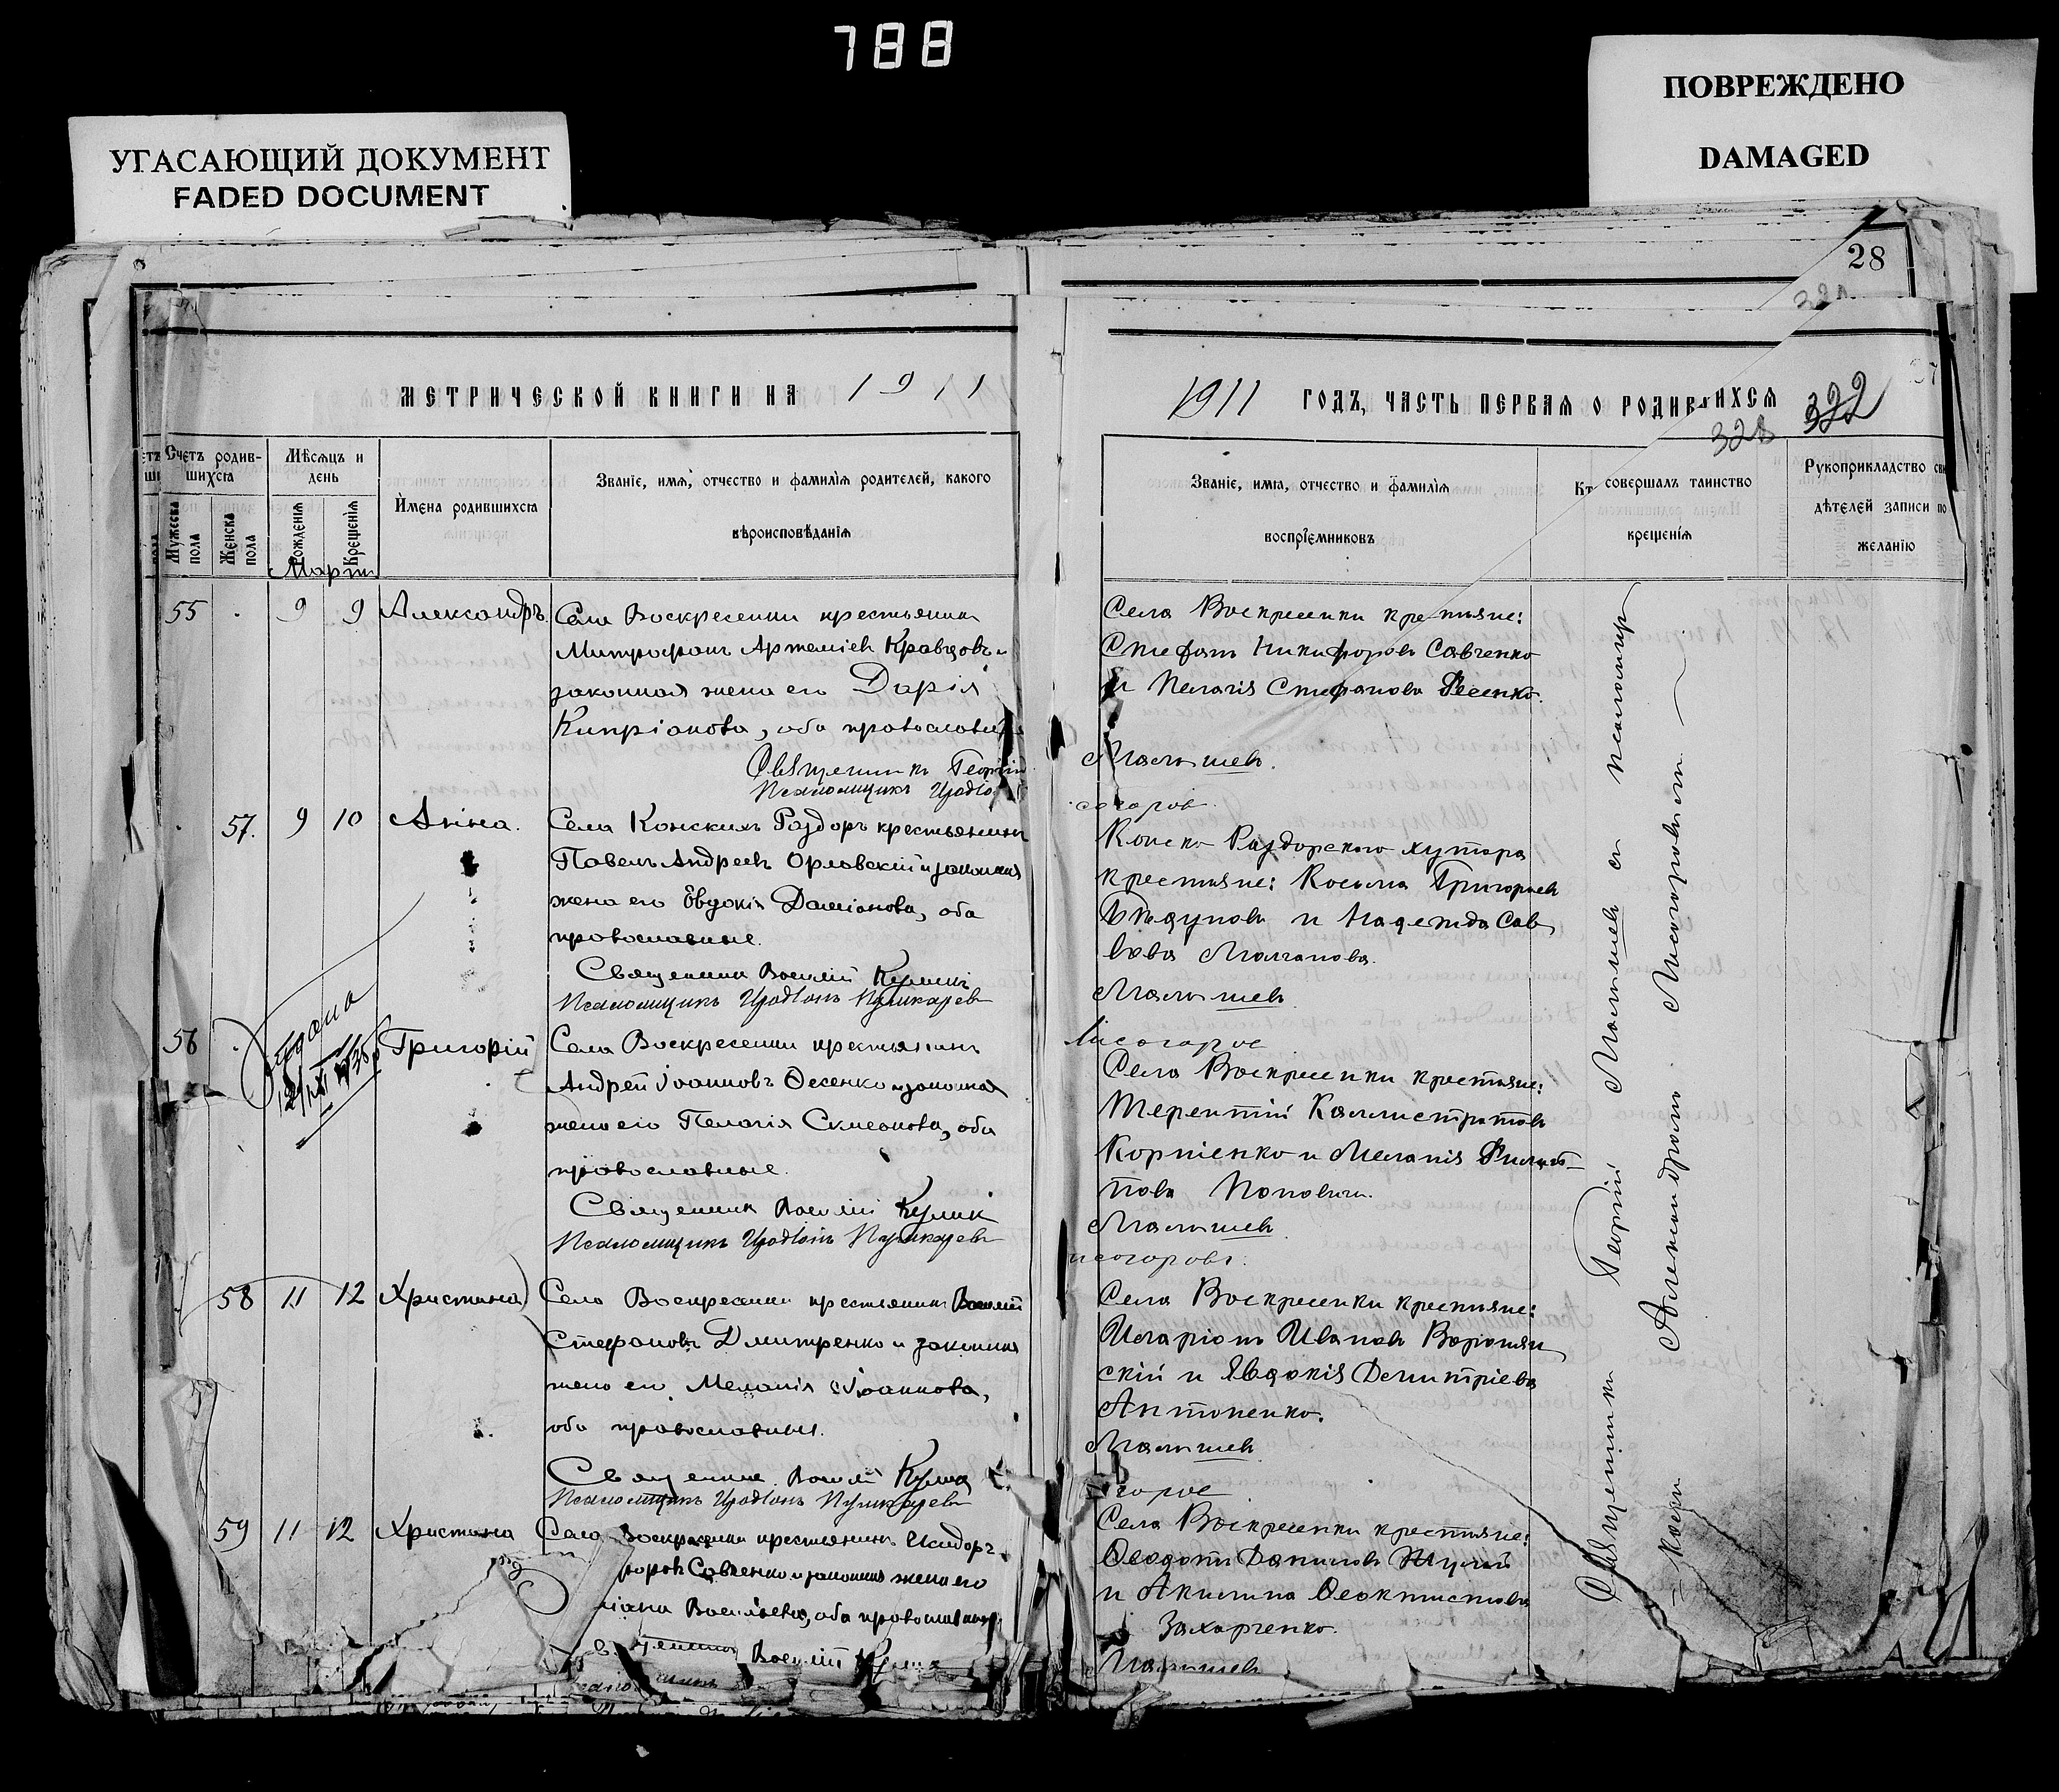 788
УГАСАЮЩИЙ ДОКУМЕНТ
FADED DOCUMENT
ПОВРЕЖДЕНО
DAMAGED
28
МЕТРИЧЕСКОЙ КНИГИ НА 1911
Счетъ родив-
шихся
Мѣсяцъ и
день
Имена родившихся
Званіе, имя, отчество и фамилія родителей, какого
вѣроисповѣданія
Мужеска
пола
Женска
пола
Рожденія
Крещенія
Мартъ
55 9 9 Александръ
Села Воскресенки крестьянинъ
Митрофанъ Артеміевъ Кравцовъ и
законная жена его Дарія
Кипріанова, оба православн
Священникъ Георгій
Псаломщикъ
57. 9 10 Анна.
Села Конскихъ Раздоръ крестьянинъ
Павелъ Андреевъ Орловскій и законная
жена его Евдокія Даміанова, оба
православные.
Священникъ Василій Куликъ
Псаломщикъ Иродіонъ Пушкаревъ
56 Григорій
Села Воскресенки крестьянинъ
Андрей Іоанновъ Ѳесенко и законная
жена его Пелагія Симеонова, оба
православные.
Священникъ Василій Кулик
Псаломщикъ Иродіонъ Пушкаревъ
58 11 12 Христина
Села Воскресенки крестьянинъ Василій
Стефановъ Дмитренко и законная
жена его Меланія Іоаннова,
оба православныя.
Священникъ Василій Кулик
Псаломщикъ Иродіонъ Пушкаревъ
59 11 12 Христина
Села Воскресенки крестьянинъ Исидоръ
Савченко и законная жена его
Васильева, оба православные
Василій
1911 ГОДЪ, ЧАСТЬ ПЕРВАЯ О РОДИВШИХСЯ 322
328
Званіе, имя, отчество и фамилія
воспріемниковъ
Кт совершалъ таинство
крещенія
Рукоприкладство сви
дѣтелей записи по
желанію
Села Воскресенки крестьяне:
Стефанъ Никифоровъ Савченко
и Пелагія Стефанова Ѳесенко.
Малышевъ.
согоровъ
Конско-Раздорскаго хутора
крестьяне: Косьма Григорьевъ
Бѣдуновъ и Надежда Сав
вова Молчанова.
Малышевъ
Лисогоров
Села Воскресенки крестьяне:
Терентій Каллистратовъ
Корніенко и Меланія Филип-
пова Поповичъ.
Малышевъ
исогоровъ.
Села Воскресенки крестьяне:
Иларіонъ Ивановъ Воронян
скій и Явдокія Демитріева
Антоненко.
Малышевъ
горов
Села Воскресенки крестьяне:
Ѳеодотъ Даниловъ
и Акилина Ѳеоктистова
Захарченко.
Малышевъ
Священникъ Георгій Малышевъ съ псаломщи
комъ Александромъ Лисогоровымъ